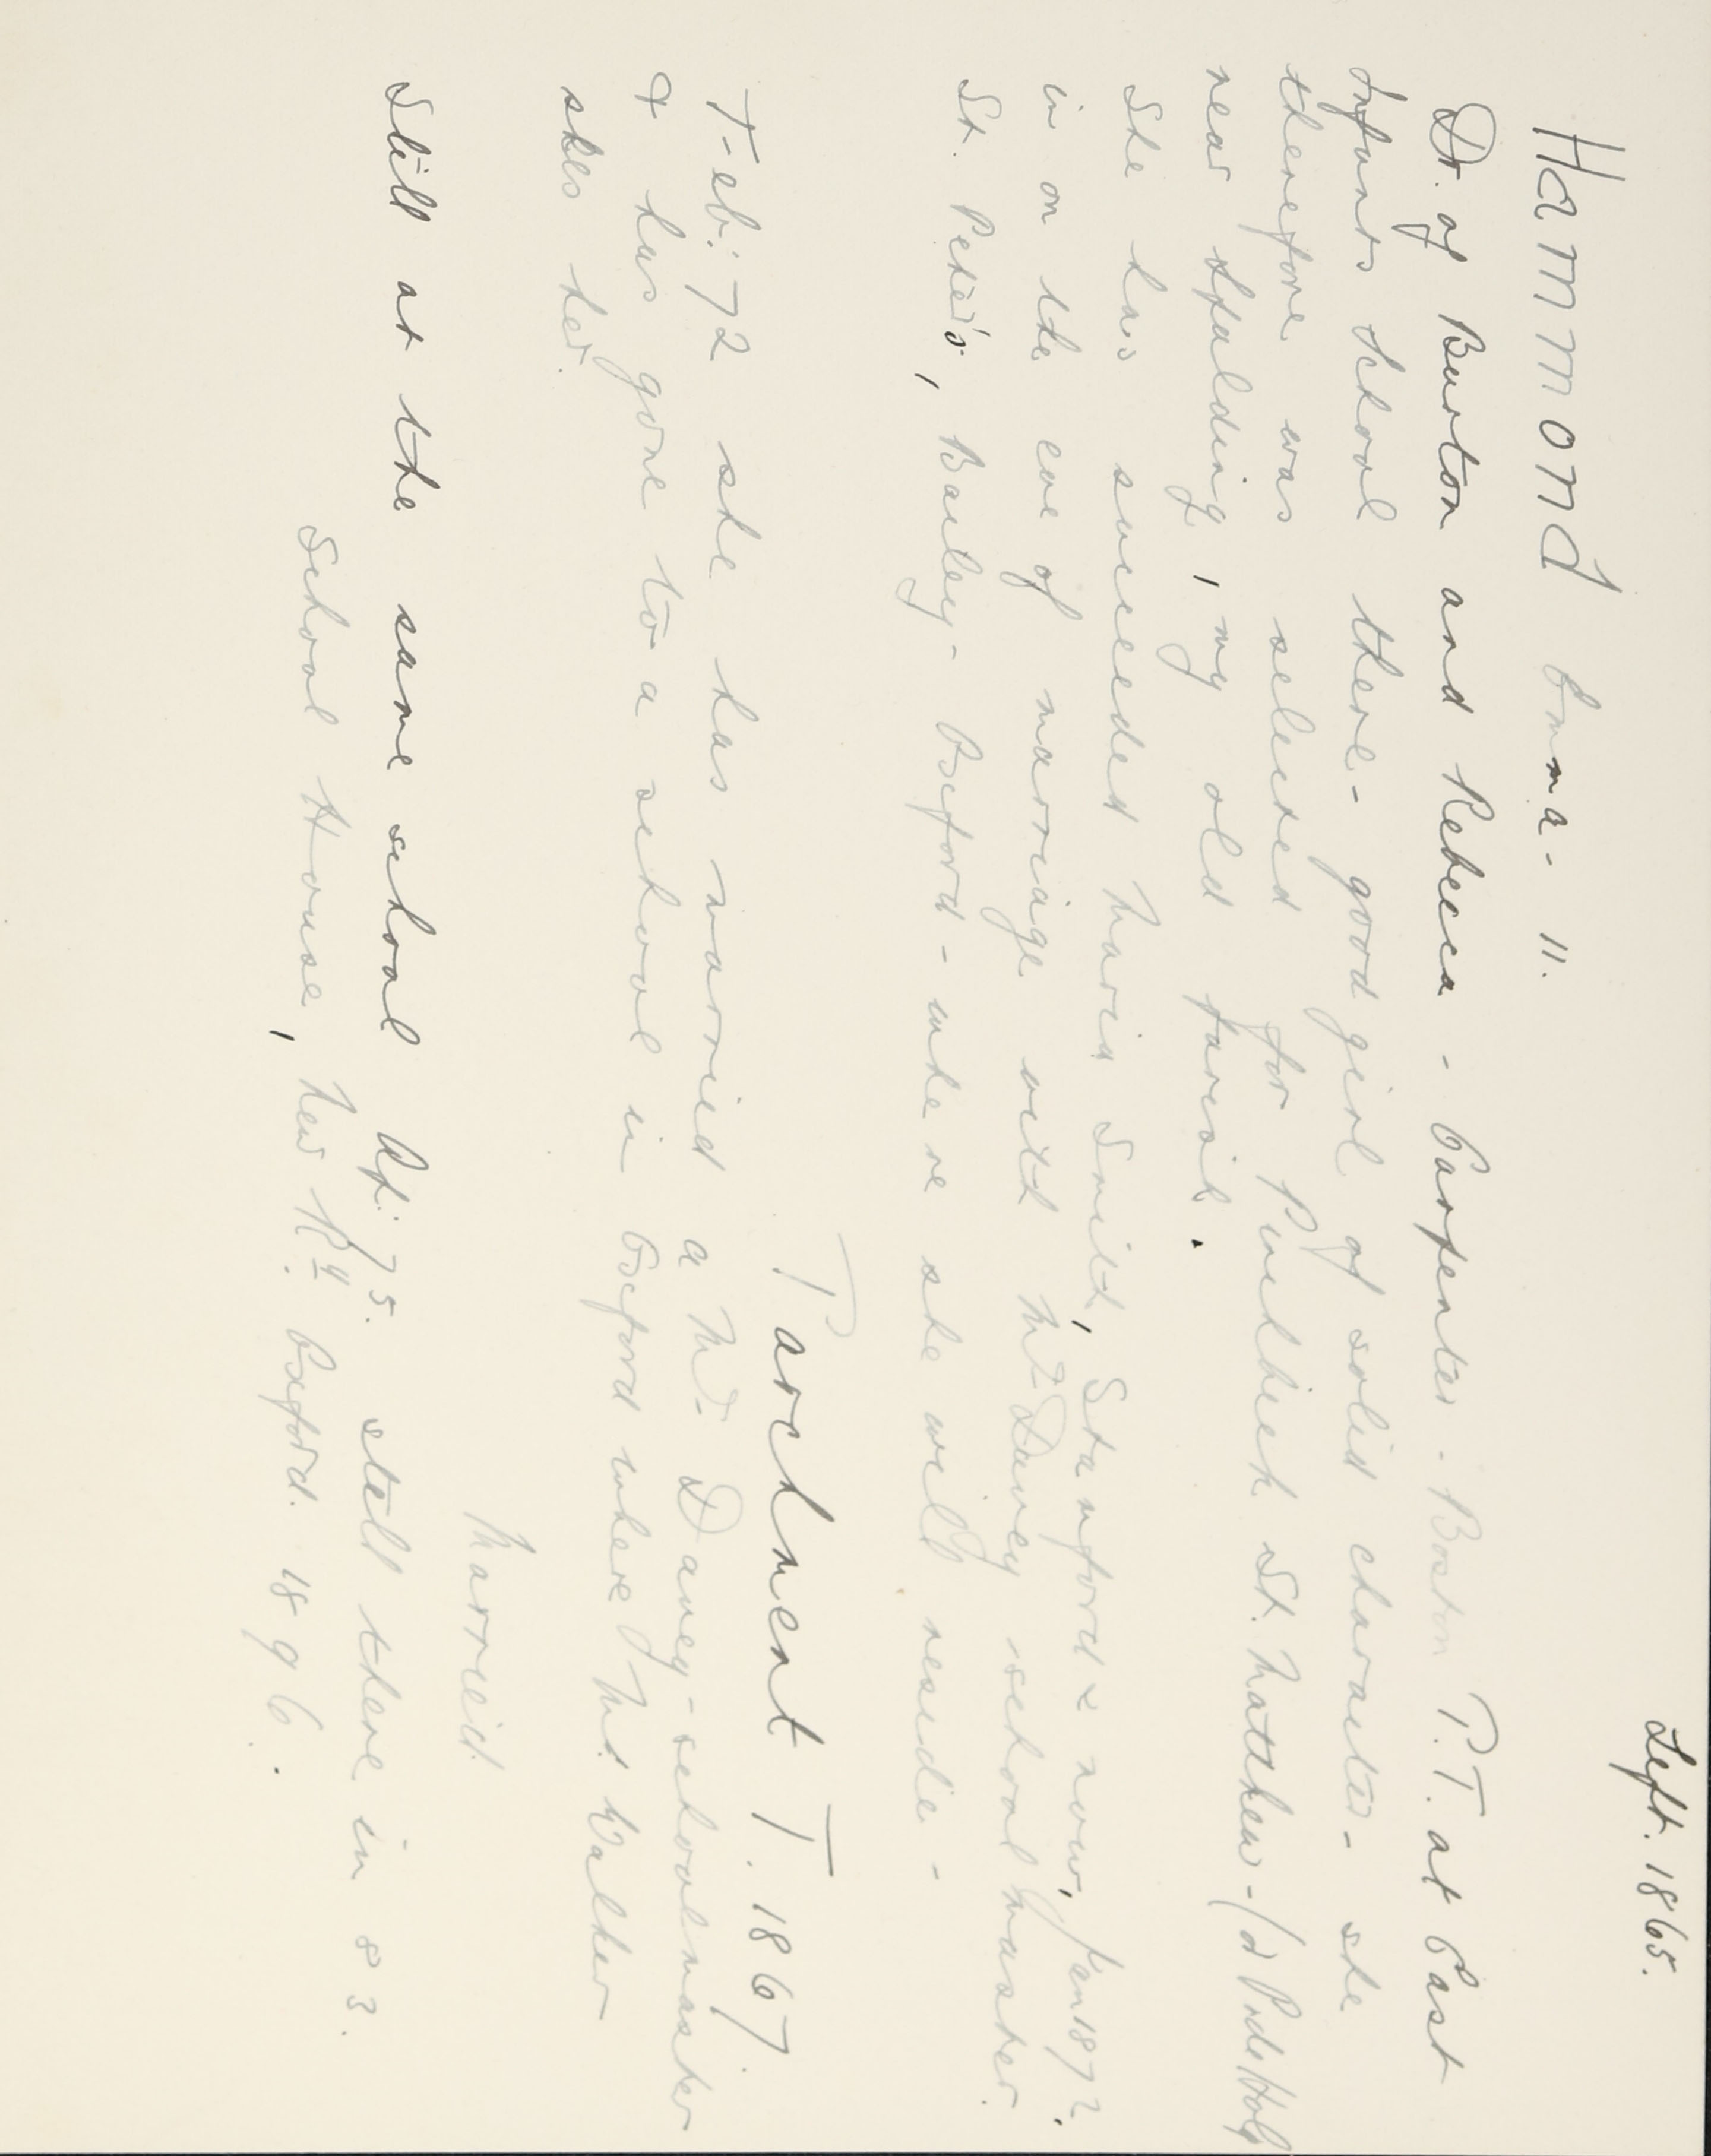 Left. 1865.
Hammond Emma - 11.
Dr. of Burton and Rebecca - Carpenter - Boston P.T. at East
Infants School there - good girl of solid character - she
therefore was selected for Pinchbeck St. Matthew -
near Spalding, my old parish.
She has succeeded Maria Smith, Stamford & now, Jan 1872.
in on the eve of marriage with Mr Davey school master
St. Peter's, Bailey - Oxford - where she will reside -
Parchment T. 1867
Feb: 72 she has married a Mr - Davey - schoolmaster
& has gone to a school in Oxford where Mrs Walker
sees her.
Married.
Still at the same school Ap: 75. still there in 83.
School House, New Rd Oxford. 1896.